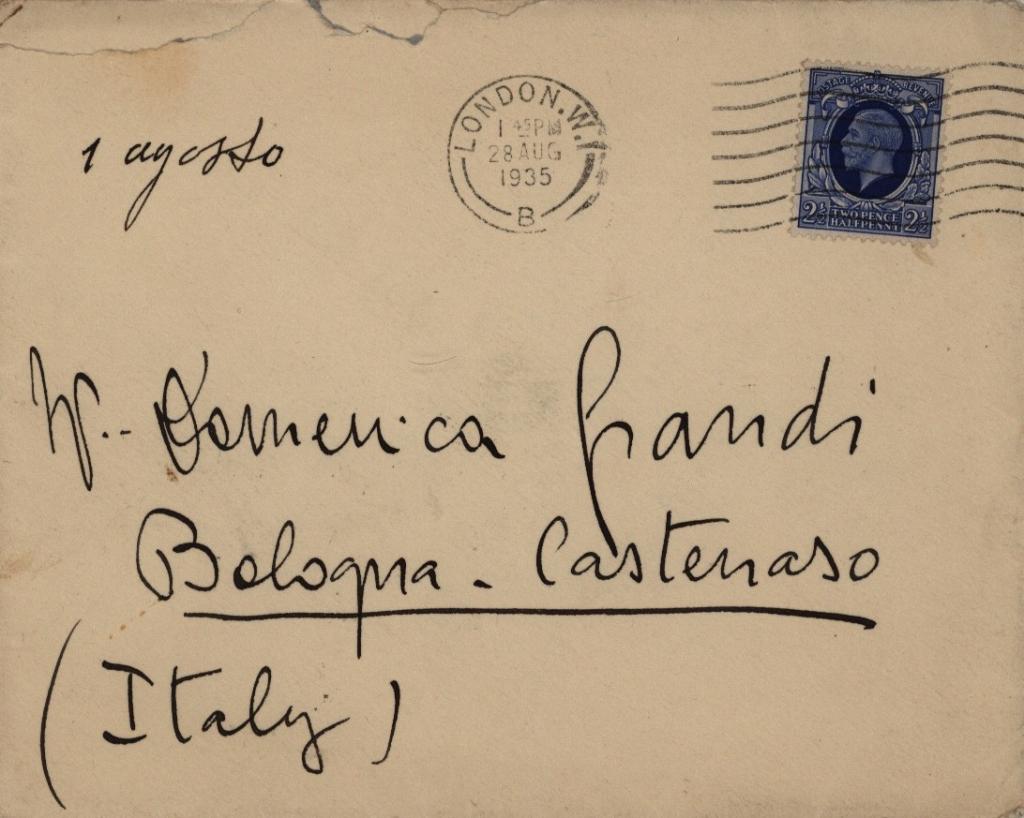 1 agosto
LONDON.W.1
1 45 PM
28 AUG
1935
B
POSTAGE REVENUE
2½ TWO PENCE HALFPENNY 2½
Domenica Grandi
Bologna - Castenaso
(Italy)